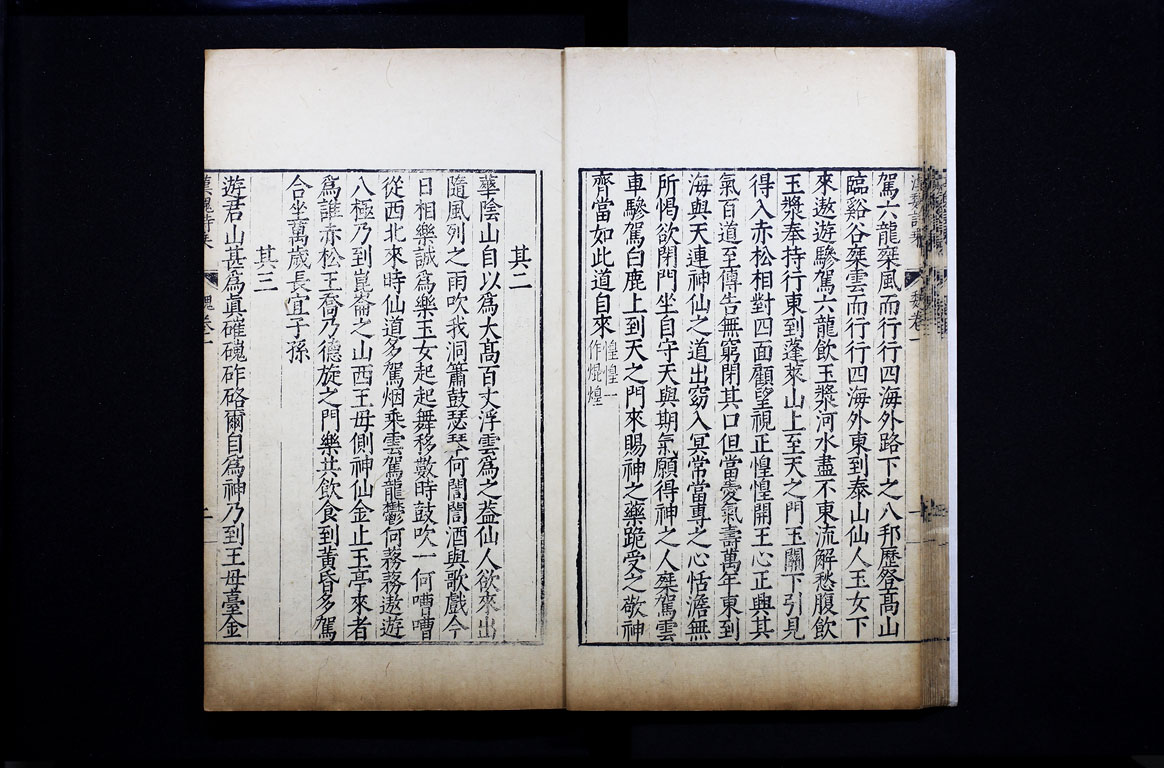 駕六龍椉風而行行四海外路下之八邦歷登髙山
臨谿谷椉雲而行行四海外東到泰山仙人玉女下
來遨遊驂駕六龍飮玉漿河水盡不東流解愁腹飮
玉漿奉持行東到蓬萊山上至天之門玉闕下引見
得入赤松相對四面顧望視正惶惶開王心正興其
氣百道至傳告無窮閉其口但當愛氣壽萬年東到
海與天連神仙之道出窈入冥常當專之心恬澹無
所愒欲閉門坐自守天與期氣願得神之人椉駕雲
車驂駕白鹿上到天之門來賜神之藥跪受之敬神
齊當如此道自來惶惶一作焜煌
其二
華陰山自以爲大髙百丈浮雲爲之葢仙人欲來出
隨風列之雨吹我洞簫鼓瑟琴何誾誾酒與歌戲今
日相樂誠爲樂玉女起起舞移數時鼓吹一何嘈嘈
從西北來時仙道多駕烟乘雲駕龍鬱何蓩蓩遨遊
八極乃到崑崙之山西王母側神仙金止玉亭來者
爲誰赤松王喬乃德旋之門樂共飮食到黃昏多駕
合坐萬歲長宜子孫
其三
遊君山甚爲眞磪磈砟硌爾自爲神乃到王母臺金
漢魏詩乘
魏卷一
二